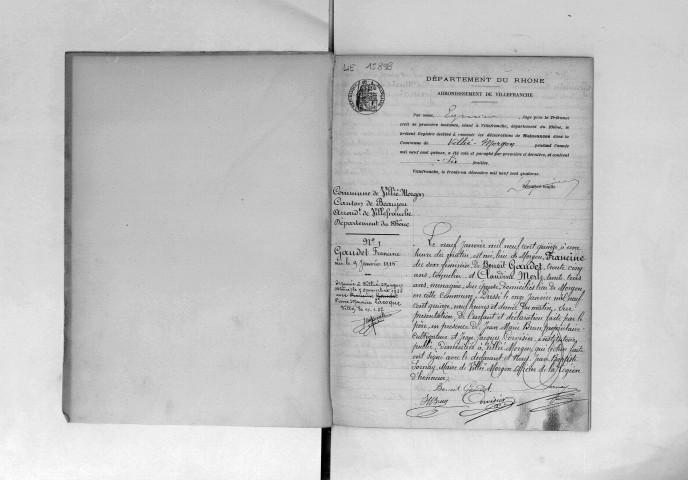 4E 15898
DÉPARTEMENT DU RHONE
ARRONDISSEMENT DE VILLEFRANCHE
Par nous, Juge pour le Tribunal
civil de première instance, séant à Villefranche, département du Rhône, le
présent Registre destiné à recevoir les déclarations de Naissances dans la
Commune de Villié-Morgon pendant l'année
mil neuf cent quinze, a été coté et paraphé par première et dernière, et contient
Six feuillets.
Villefranche, le décembre mil neuf cent quatorze.
Commune de Villié-Morgon
Canton de Beaujeu
Arrond.t de Villefranche
Département du Rhône
N° 1
Gaudet Francine
née le 9 Janvier 1915
Mariée à Villié-Morgon
avec
Pierre Marcius
Le neuf Janvier mil neuf cent quinze à une
heure du matin est née, lieu de Morgon, Francine
du sexe féminin de Benoit Gaudet, trente cinq
ans, et Claudine trente trois
ans, ménagère, son épouse, domiciliés lieu de Morgon,
en cette Commune. Dressé le onze Janvier mil neuf
cent quinze, neuf heures et demie du matin, sur
présentation de l'enfant et déclaration faite par le
père, en présence de Jean Marie Brun propriétaire-
cultivateur et Jean Jacques Corvisier, instituteur
public, domiciliés à Villié-Morgon, qui lecture faite
ont signé avec le déclarant et Nous, Jean Baptiste
Sornay, Maire de Villié-Morgon officier de la Légion
d'honneur.
Benoit Gaudet